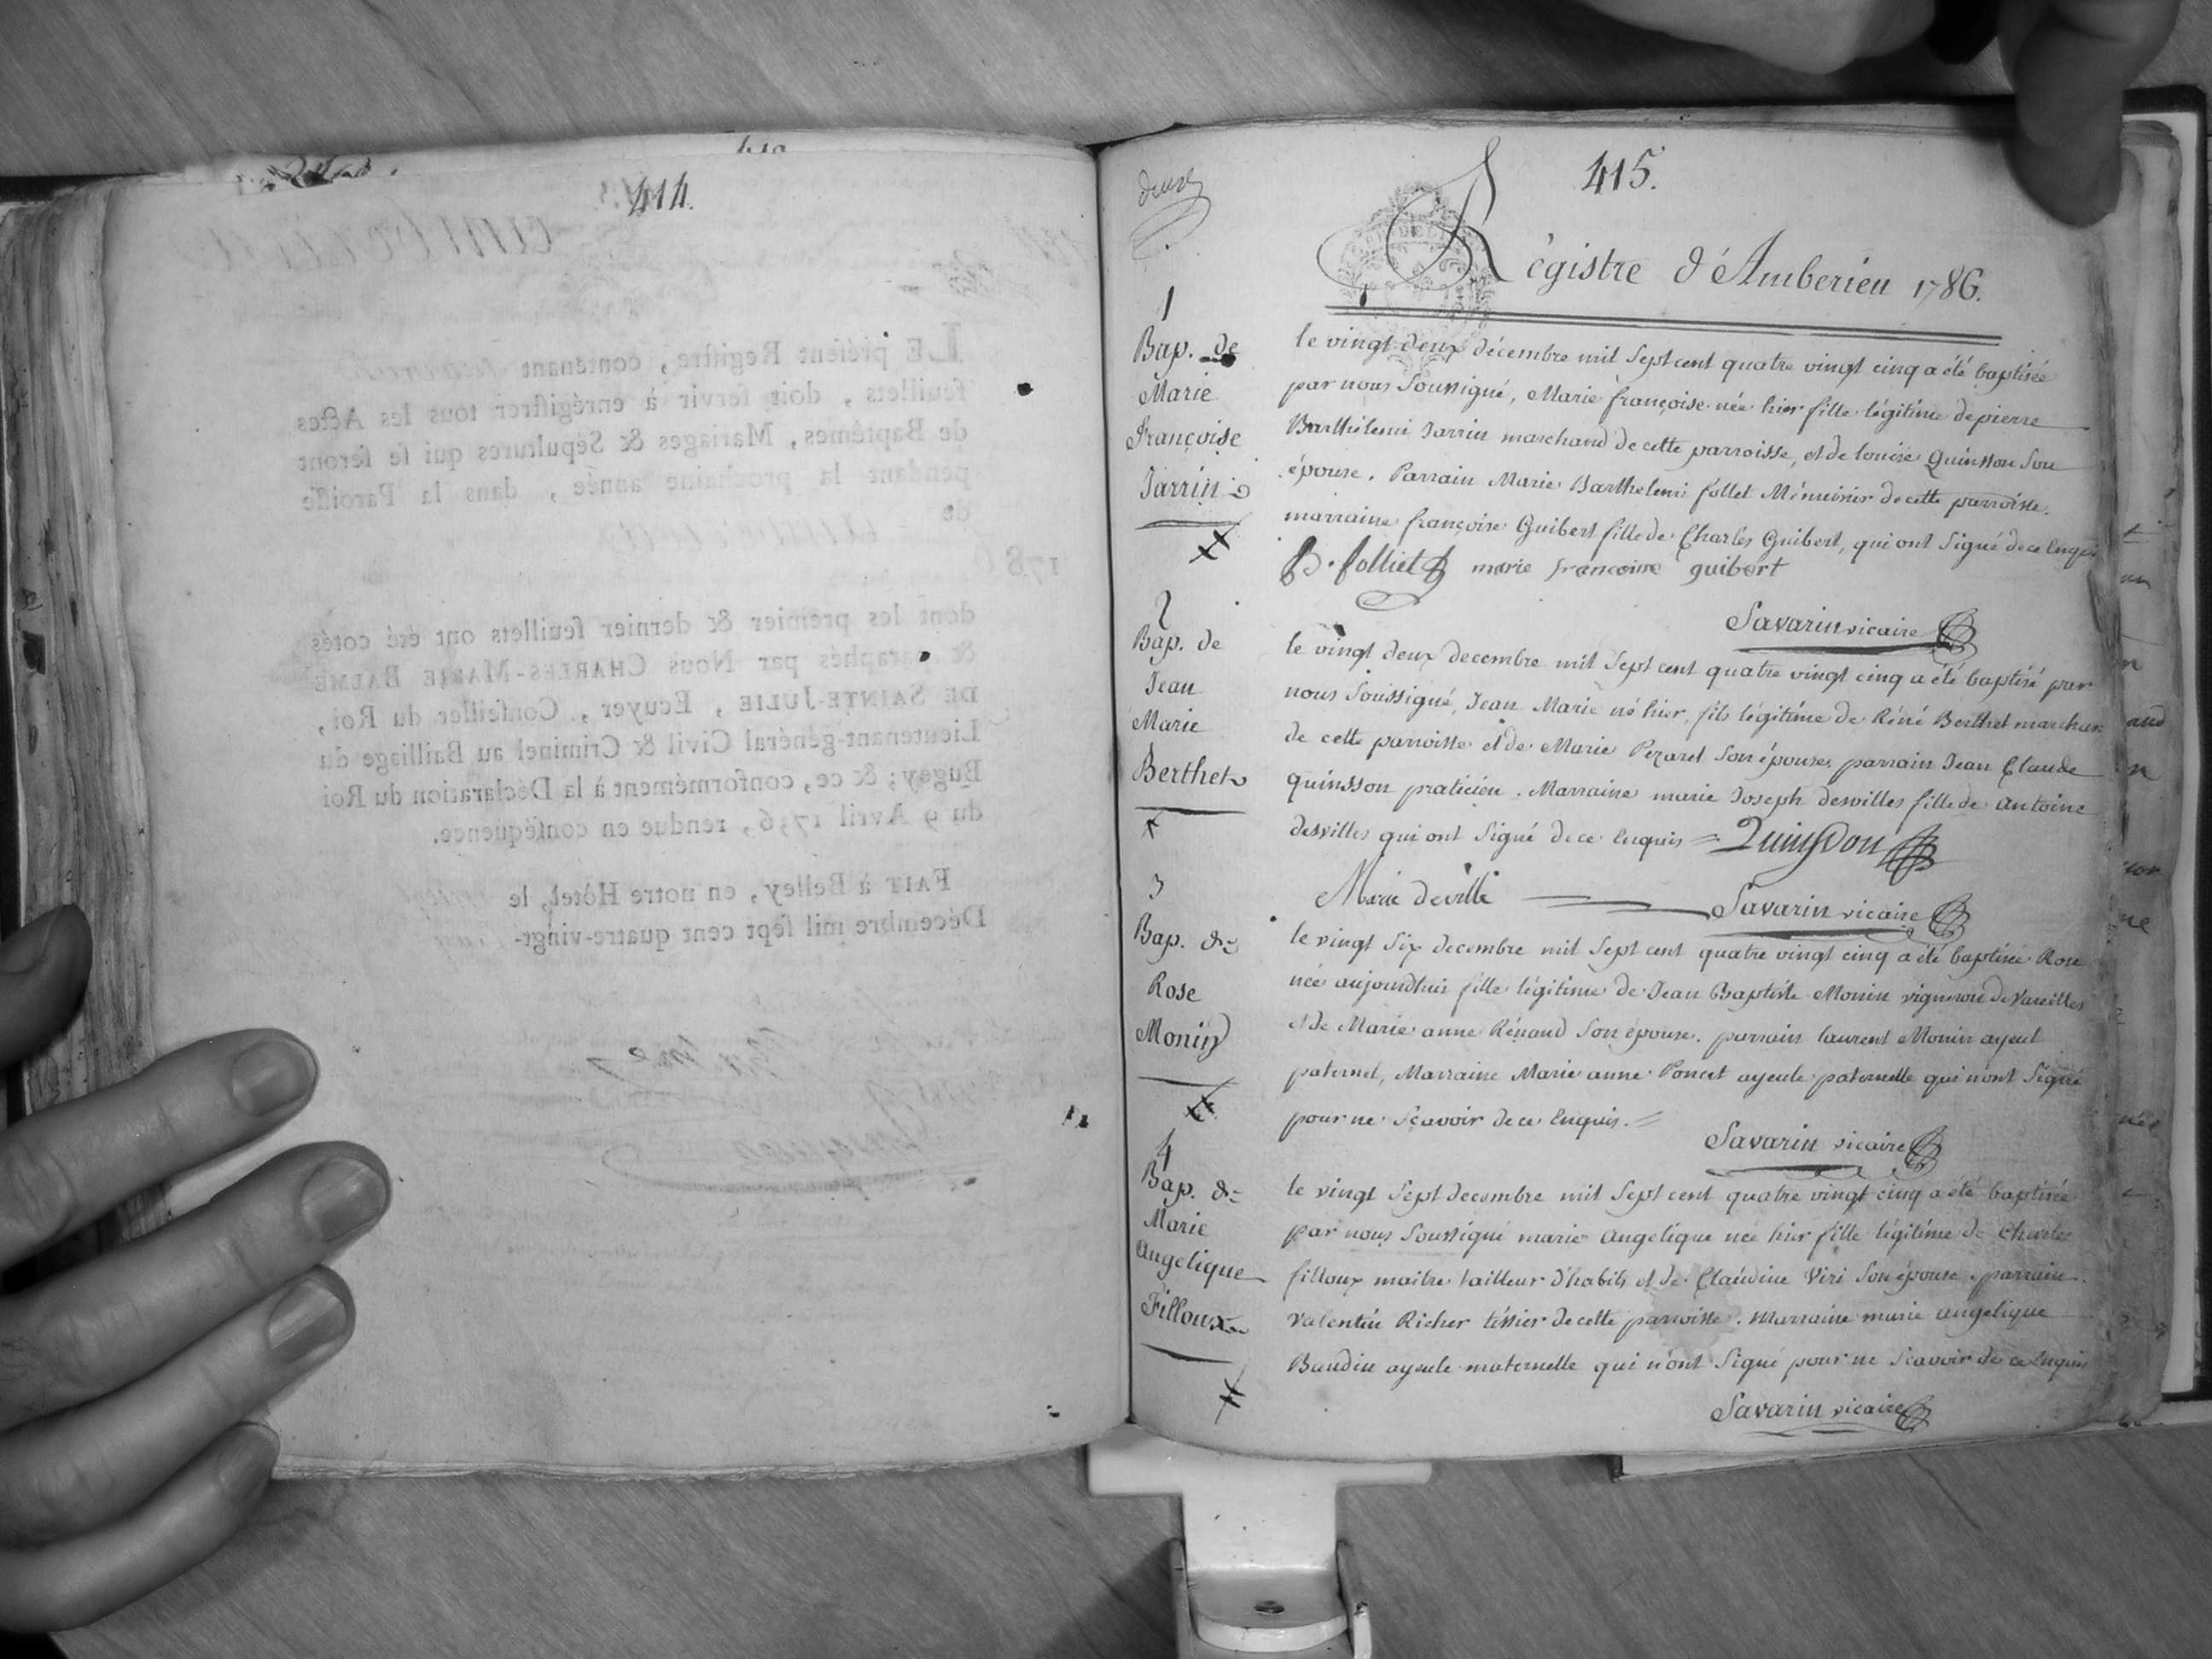 414.
LE préſent Regiſtre, contenant
feuillets, doit ſervir à enrégiſtrer tous les Actes
de Baptêmes, Mariages & Sépultures qui ſe feront
pendant la prochaine année, dans la Paroiſſe
de
178
dont les premier & dernier feuillets ont été cotés
& paraphés par Nous CHARLES-MARIE BALME
DE SAINTE-JULIE, Ecuyer, Conſeiller du Roi,
Lieutenant-général Civil & Criminel au Bailliage du
Bugey; & ce, conformément à la Déclaration du Roi
du 9 Avril 1736, rendue en conſéquence.
FAIT à Belley, en notre Hôtel, le
Décembre mil ſept cent quatre-vingt-
415.
Régistre d'Amberieu 1786.
1
Bap. de
Marie
Françoise
Jarrin
le vingt deux décembre mil sept cent quatre vingt cinq a été baptisée
par nous soussigné, Marie françoise née hier fille légitime de pierre
Barthélemi Jarrin marchand de cette parroisse, et de louise Quinsson son
épouse. Parrain Marie Barthelemi follet Ménuisier de cette parroisse.
marraine françoise Guibert fille de Charles Guibert, qui ont signé de ce Enquis
B. folliet marie francoise guibert
Savarin vicaire
2
Bap. de
Jean
Marie
Berthet
le vingt deux decembre mil sept cent quatre vingt cinq a été baptisé par
nous soussigné, Jean Marie né hier, fils légitime de Réné Berthet marchand
de cette parroisse et de Marie Pezaret son épouse, parrain Jean Claude
quinsson praticien. Marraine marie Joseph desvilles fille de antoine
desvilles qui ont signé de ce Enquis = Quinsson
Marie deville Savarin vicaire
3
Bap. de
Rose
Monin
le vingt six decembre mil sept cent quatre vingt cinq a été baptisée Rose
née aujourdhui fille légitime de Jean Baptiste Monin vigneron de Vareilles
et de Marie anne Rénaud son épouse. parrain laurent Monin ayeul
paternel, Marraine Marie anne Poncet ayeule paternelle qui n'ont signé
pour ne sçavoir de ce Enquis. =
Savarin vicaire
4
Bap. de
Marie
angelique
Filloux
le vingt sept decembre mil sept cent quatre vingt cinq a été baptisée
par nous soussigné marie angelique née hier fille légitime de Charles
filloux maitre tailleur d'habits et de Claudine Viri son épouse, parrain
valentin Richer tissier de cette parroisse. Marraine marie angelique
Baudin ayeule maternelle qui n'ont signé pour ne scavoir de ce enquis
Savarin vicaire